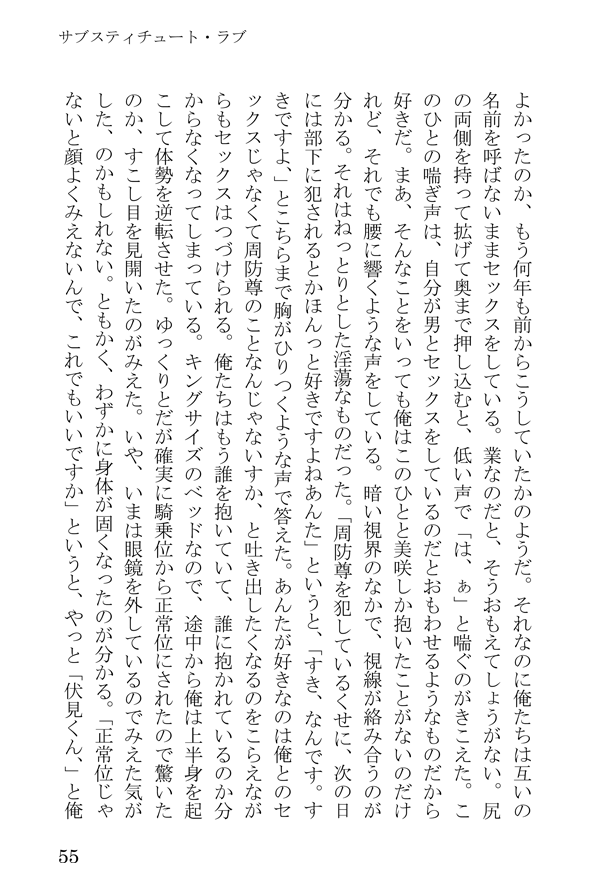 サブスティチュート・ラブ
よかったのか、もう何年も前からこうしていたかのようだ。それなのに俺たちは互いの
名前を呼ばないままセックスをしている。業なのだと、そうおもえてしょうがない。尻
の両側を持って拡げて奥まで押し込むと、低い声で「は、ぁ」と喘ぐのがきこえた。こ
のひとの喘ぎ声は、自分が男とセックスをしているのだとおもわせるようなものだから
好きだ。まあ、そんなことをいっても俺はこのひとと美咲しか抱いたことがないのだけ
れど、それでも腰に響くような声をしている。暗い視界のなかで、視線が絡み合うのが
分かる。それはねっとりとした淫蕩なものだった。「周防尊を犯しているくせに、次の日
には部下に犯されるとかほんっと好きですよねあんた」というと、「すき、なんです。す
きですよ、」とこちらまで胸がひりつくような声で答えた。あんたが好きなのは俺とのセ
ックスじゃなくて周防尊のことなんじゃないすか、と吐き出したくなるのをこらえなが
らもセックスはつづけられる。俺たちはもう誰を抱いていて、誰に抱かれているのか分
からなくなってしまっている。キングサイズのベッドなので、途中から俺は上半身を起
こして体勢を逆転させた。ゆっくりとだが確実に騎乗位から正常位にされたので驚いた
のか、すこし目を見開いたのがみえた。いや、いまは眼鏡を外しているのでみえた気が
した、のかもしれない。ともかく、わずかに身体が固くなったのが分かる。「正常位じゃ
ないと顔よくみえないんで、これでもいいですか」というと、やっと「伏見くん、」と俺
55